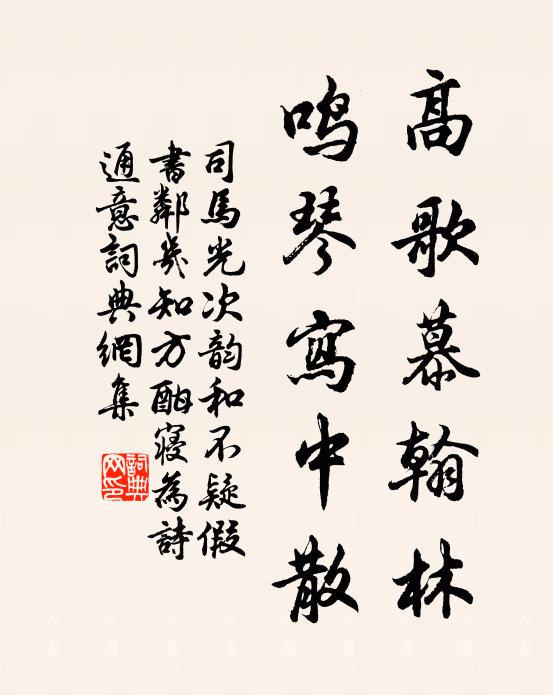 高歌慕翰林
鸣琴寫中散
司馬光次韵和不疑假
書鄰㡬知方酣寝為詩
通意詞典網集
詞典网印